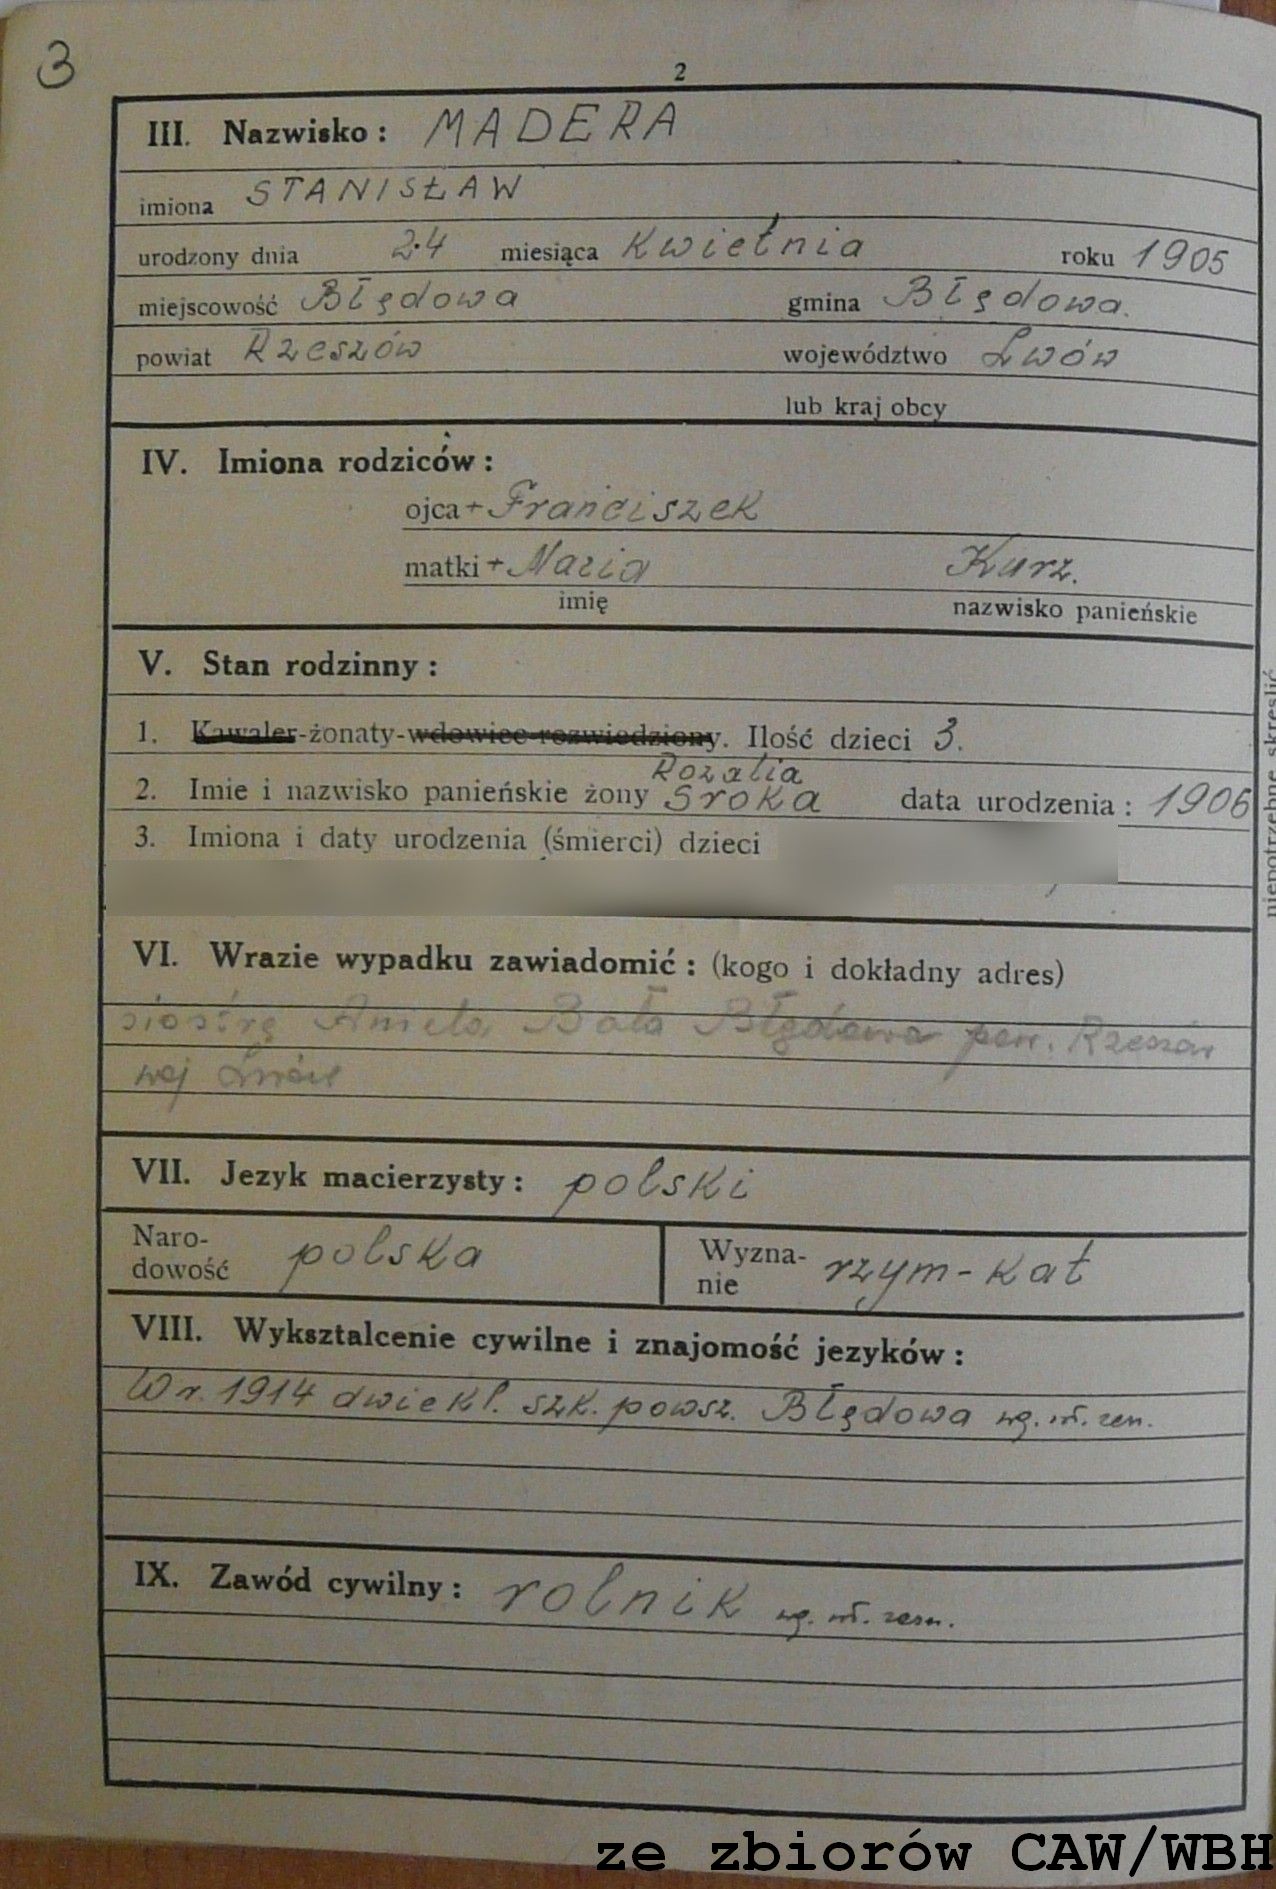 3
2
III. Nazwisko: MADERA
imiona STANISŁAW
urodzony dnia 24 miesiąca Kwietnia roku 1905
miejscowość Błędowa gmina Błędowa.
powiat Rzeszów województwo Lwów
lub kraj obcy
IV. Imiona rodziców:
ojca + Franciszek
matki + Maria Kurz.
imię nazwisko panieńskie
V. Stan rodzinny:
1. Kawaler-żonaty-wdowiec-rozwiedziony. Ilość dzieci 3.
Rozalia
2. Imie i nazwisko panieńskie żony Sroka data urodzenia: 1906
3. Imiona i daty urodzenia (śmierci) dzieci
niepotrzebne skreślić
VI. Wrazie wypadku zawiadomić: (kogo i dokładny adres)
siostrę Aniela Bała Błędowa pow. Rzeszów
woj Lwów
VII. Jezyk macierzysty: polski
Naro-
dowość polska
Wyzna-
nie rzym-kat
VIII. Wyksztalcenie cywilne i znajomość jezyków:
W r. 1914 dwie kl. szk. powsz. Błędowa wg. wł. zezn.
IX. Zawód cywilny: rolnik wg. wł. zezn.
ze zbiorów CAW/WBH